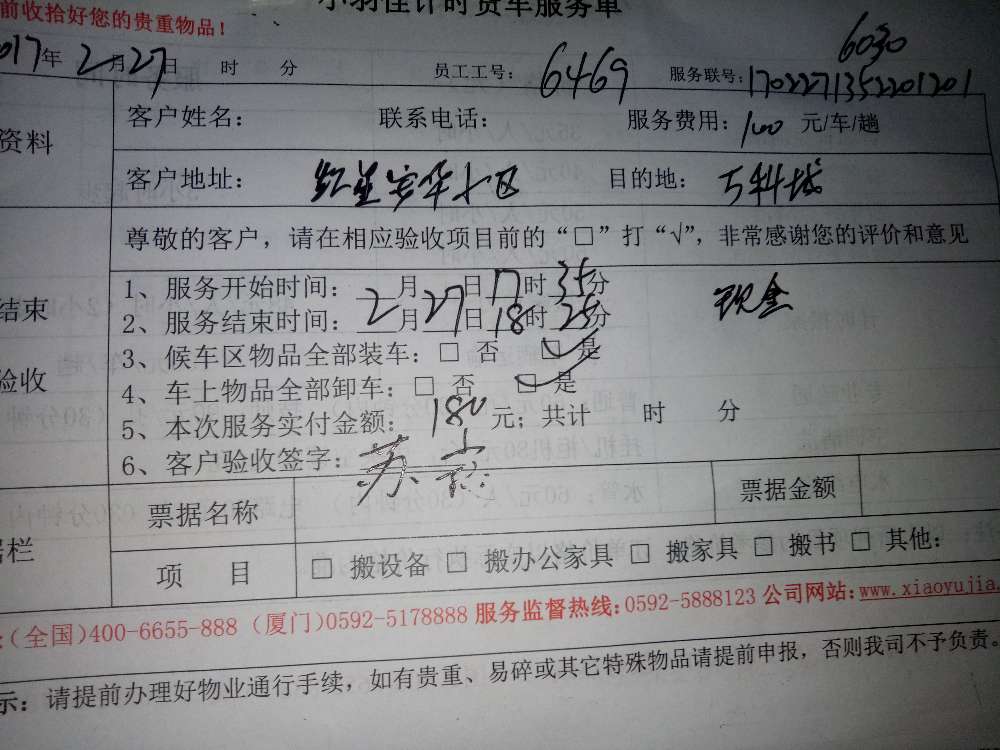 前收拾好您的贵重物品！
小羽佳计时货车服务单
6030
017年2月27日 时 分 员工工号：6469 服务联号：1702271352201201
资料
客户姓名： 联系电话： 服务费用：100 元/车/趟
客户地址：红星安华小区 目的地：万科城
尊敬的客户，请在相应验收项目前的“□”打“√”，非常感谢您的评价和意见
结束
验收
1、服务开始时间：2月27日17时35分
现金
2、服务结束时间：2月27日18时25分
3、候车区物品全部装车：□ 否 □ 是
4、车上物品全部卸车：□ 否 □ 是
5、本次服务实付金额：180元；共计 时 分
6、客户验收签字：苏
据栏
票据名称 票据金额
项 目 □ 搬设备 □ 搬办公家具 □ 搬家具 □ 搬书 □ 其他：
：（全国）400-6655-888（厦门）0592-5178888 服务监督热线：0592-5888123 公司网站：www.xiaoyujia.
示：请提前办理好物业通行手续，如有贵重、易碎或其它特殊物品请提前申报，否则我司不予负责。